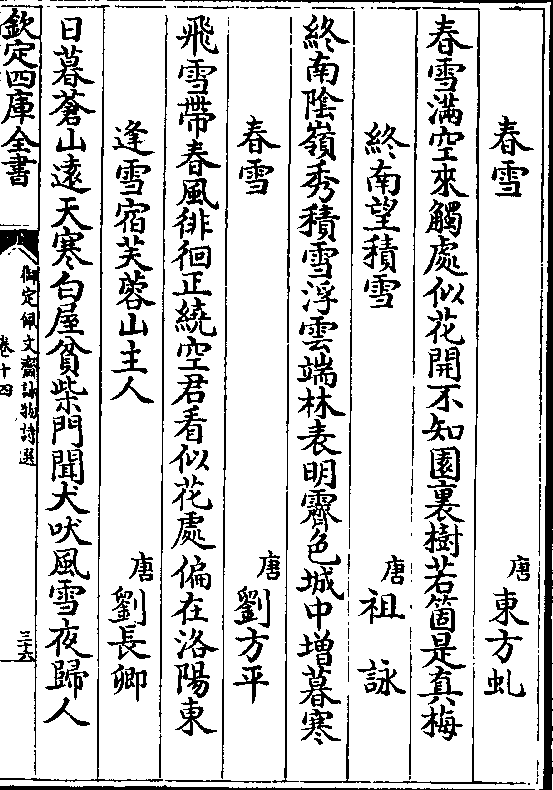 春雪 唐 東方虬
春雪滿空來觸處似花開不知園裏樹若箇是真梅
終南望積雪 唐 祖詠
終南陰嶺秀積雪浮雲端林表明霽色城中增暮寒
春雪 唐 劉方平
飛雪帶春風徘徊正繞空君看似花處偏在洛陽東
逢雪宿芙蓉山主人 唐 劉長卿
日暮蒼山遠天寒白屋貧柴門聞犬吠風雪夜歸人
欽定四庫全書
御定佩文齋詠物詩選
卷十四
三十六